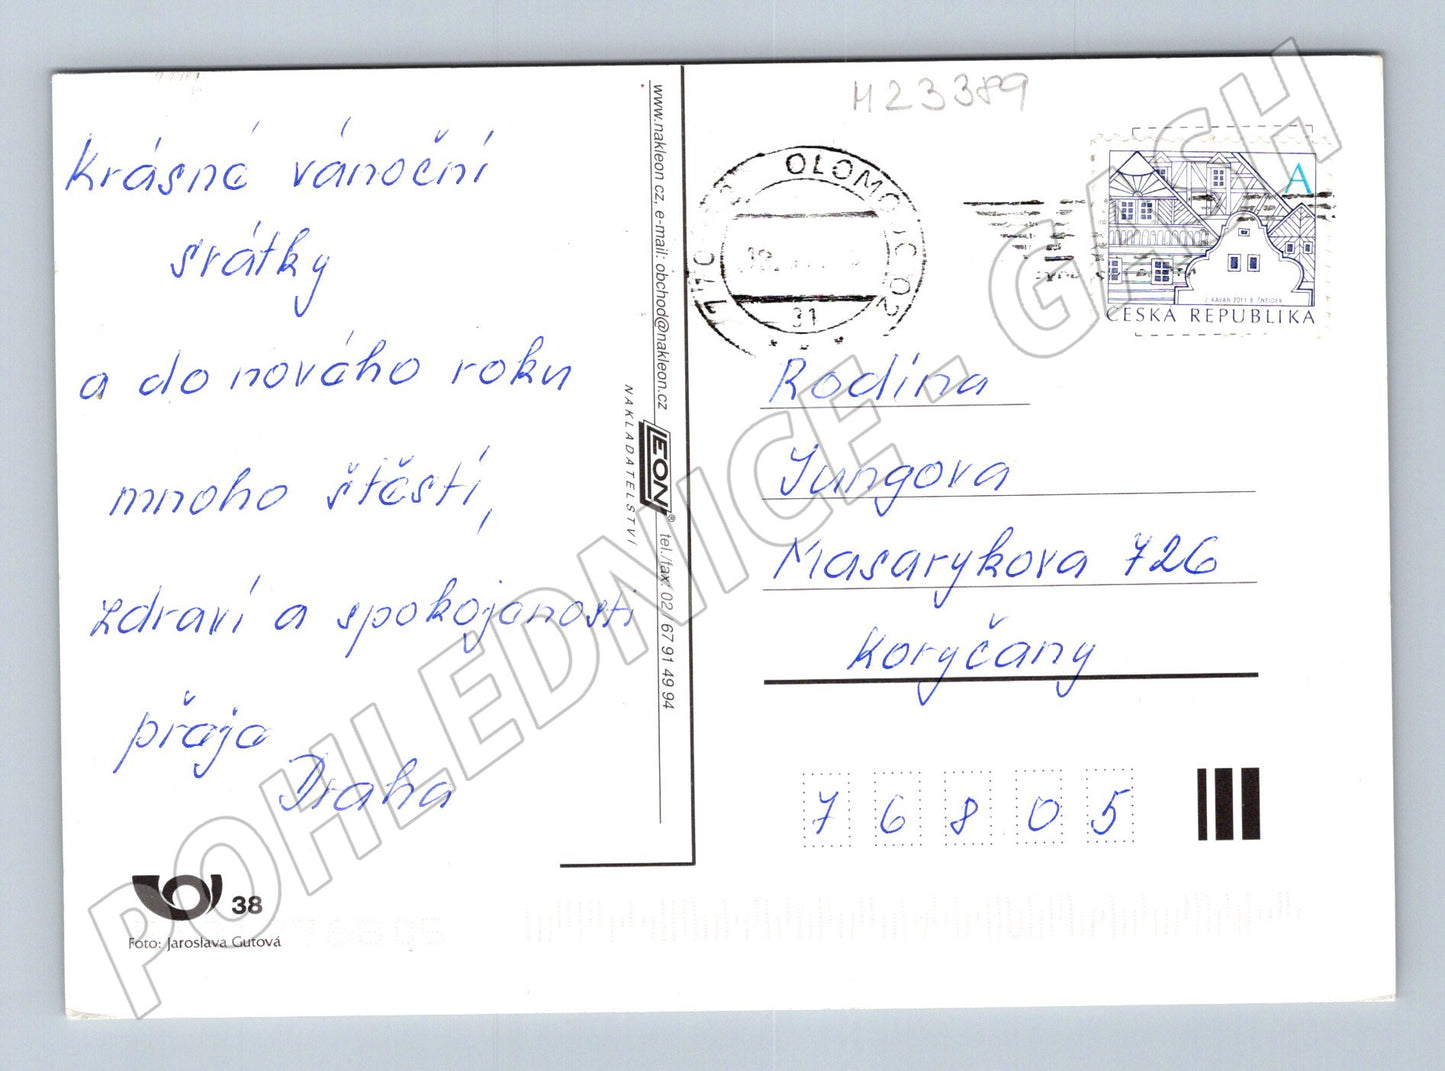 Krásné vánoční
svátky
a do nového roku
mnoho štěstí,
zdraví a spokojenosti
přeje
Draha
38
Foto: Jaroslava Gutová
www.nakleon.cz, e-mail: obchod@nakleon.cz
NAKLADATELSTVÍ
LEON®
tel./fax: 02/67 91 49 94
H23389
OLOMOUC 02
31
A
J. KAVAN 2011 B. ŠNEIDER
ČESKÁ REPUBLIKA
Rodina
Jungova
Masarykova 726
Koryčany
76805
POHLEDNICE.GASH